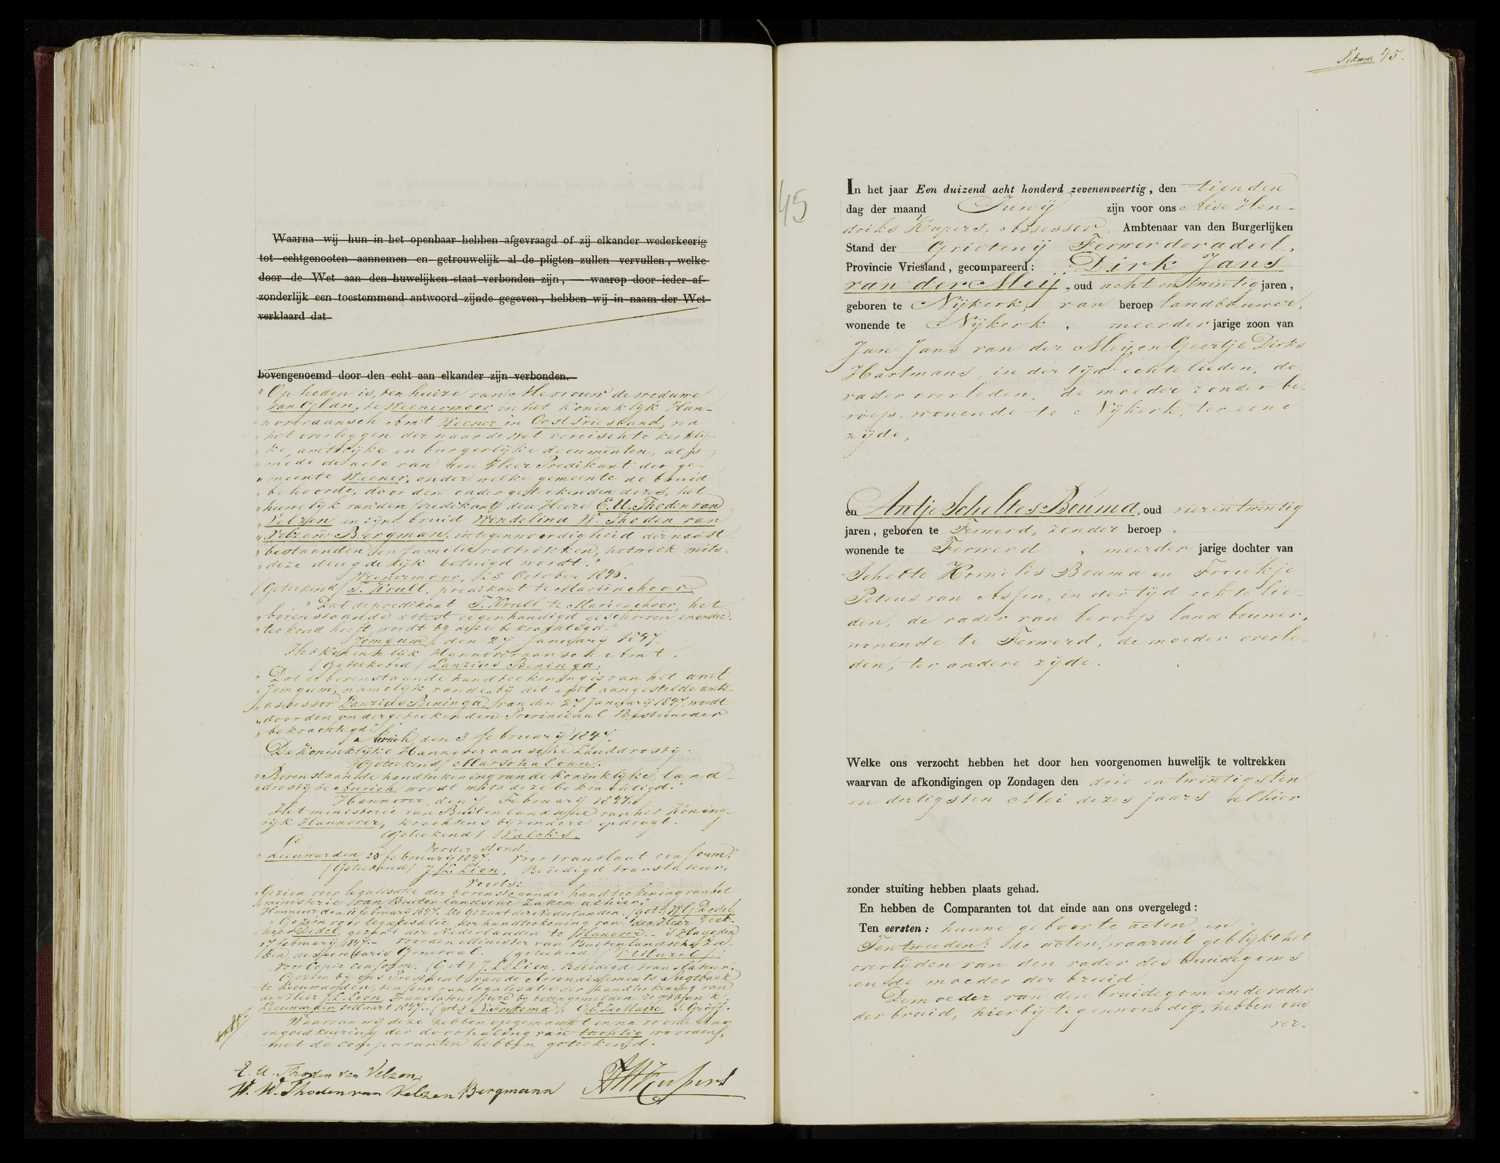 Waarna wij hun in het openbaar hebben afgevraagd of zij elkander wederkeerig
tot echtgenooten aannemen en getrouwelijk al de pligten zullen vervullen, welke
door de Wet aan den huwelijken staat verbonden zijn, waarop door ieder af-
zonderlijk een toestemmend antwoord zijnde gegeven, hebben wij in naam der Wet
verklaard dat
bovengenoemd door den echt aan elkander zijn verbonden.
Op heden is, ten huize van Mevrouw de weduwe
van Cylan, te Weenermoor in het Koninklijk Han-
noveraansch Amt Weener in Oostvriesland, na
het overleggen der naar de Wet vereischte kerkelij-
ke, amtelijke en burgerlijke documenten, als
mede de acte van den Heer Predikant der ge-
meente Weener, onder welke gemeente de bruid
behoorde, door den ondergeteekenden dezes, het
huwelijk van den predikant den Heere E. U. Thoden van
Velzen en zijne bruid Wendelina W. Thoden van
Velzen Bergman, in tegenwoordigheid der naast
bestaanden en familie voltrokken, hetwelk mits
deze deugdelijk betuigd wordt.
Weenermoor, 25 October 1846.
(Geteekend) T. Krull, predikant te Mariënchoor
Dat de predikant T. Krull te Mariënchoor, het
bovenstaande attest eigenhandig geschreven en onder-
teekend heeft wordt bij dezen bekrachtigd.
Jemgum, den 27 Januarij 1847
Het Koninklijk Hannoveraansche Amt.
(Geteekend) Lanzius Beninga.
Dat de bovenstaande handteekening is van het amt
Jemgum, namelijk van den bij dit Amt aangestelde amts-
assessor Lanzius Beninga, van den 27 Januarij 1847 wordt
door den ondergeteekenden Provinciaal Bestuurder
bekrachtigd.
Aurich, den 3 februarij 1847.
De Koninklijke Hannoveraansche Landdrostij.
(Geteekend) Marschalvan.
Bovenstaande handteekening van de Koninklijke land-
drostij te Aurich wordt mits deze bekrachtigd.
Hannover, den februarij 1847.
Het ministerie van Buitenlandsche van het Koning-
rijk Hannover, krachtens bijzondere opdragt.
(Geteekend)
Verder stond.
Leeuwarden, 23 februarij 1847. Voor translaat conform,
(Geteekend) J. L. Lion, Beëedigd translateur.
Gezien voor legalisatie der bovenstaande handteekening van het
ministerie van Buitenlandsche Zaken alhier.
Waarvan wij deze hebben opgemaakt en na voorlezing
en goedkeuring der doorhaling van woorden,
met de comparanten hebben geteekend.
E. U. Thoden van Velzen
W. W. Thoden van Velzen Bergmann
45
45.
In het jaar Een duizend acht honderd zevenenveertig, den tienden
dag der maand Junij zijn voor ons Aive Hen-
driks Kuipers, Assessor Ambtenaar van den Burgerlijken
Stand der Grietenij Ferwerderadeel,
Provincie Vriesland, gecompareerd: Dirk Jans
van der Meij, oud achtentwintig jaren,
geboren te Nijkerk, van beroep landbouwer,
wonende te Nijkerk, meerderjarige zoon van
Jan Jans van der Meij en Geertje Dirks
Hartmans, in der tijd echtelieden, de
vader overleden, de moeder zonder be-
roep, wonende te Nijkerk, ter eene
zijde,
en Antje Scheltes Bouma, oud vierentwintig
jaren, geboren te Ferwerd, zonder beroep
wonende te Ferwerd, meerderjarige dochter van
Schelte Kornelis Bouma en Froukje
Peters van Assen, in der tijd echtelie-
den, de vader van beroep landbouwer,
wonende te Ferwerd, de moeder overle-
den, ter andere zijde.
Welke ons verzocht hebben het door hen voorgenomen huwelijk te voltrekken
waarvan de afkondigingen op Zondagen den drie en twintigsten
en dertigsten Mei dezes jaars alhier
zonder stuiting hebben plaats gehad.
En hebben de Comparanten tot dat einde aan ons overgelegd:
Ten eersten: hunne geboorte acten, en
Ten tweeden: de acten, waaruit geblijkt het
overlijden van den vader des bruidegoms
en de moeder der bruid
De moeder van den bruidegom en de vader
der bruid, hierbij tegenwoordig, hebben ons
ver-